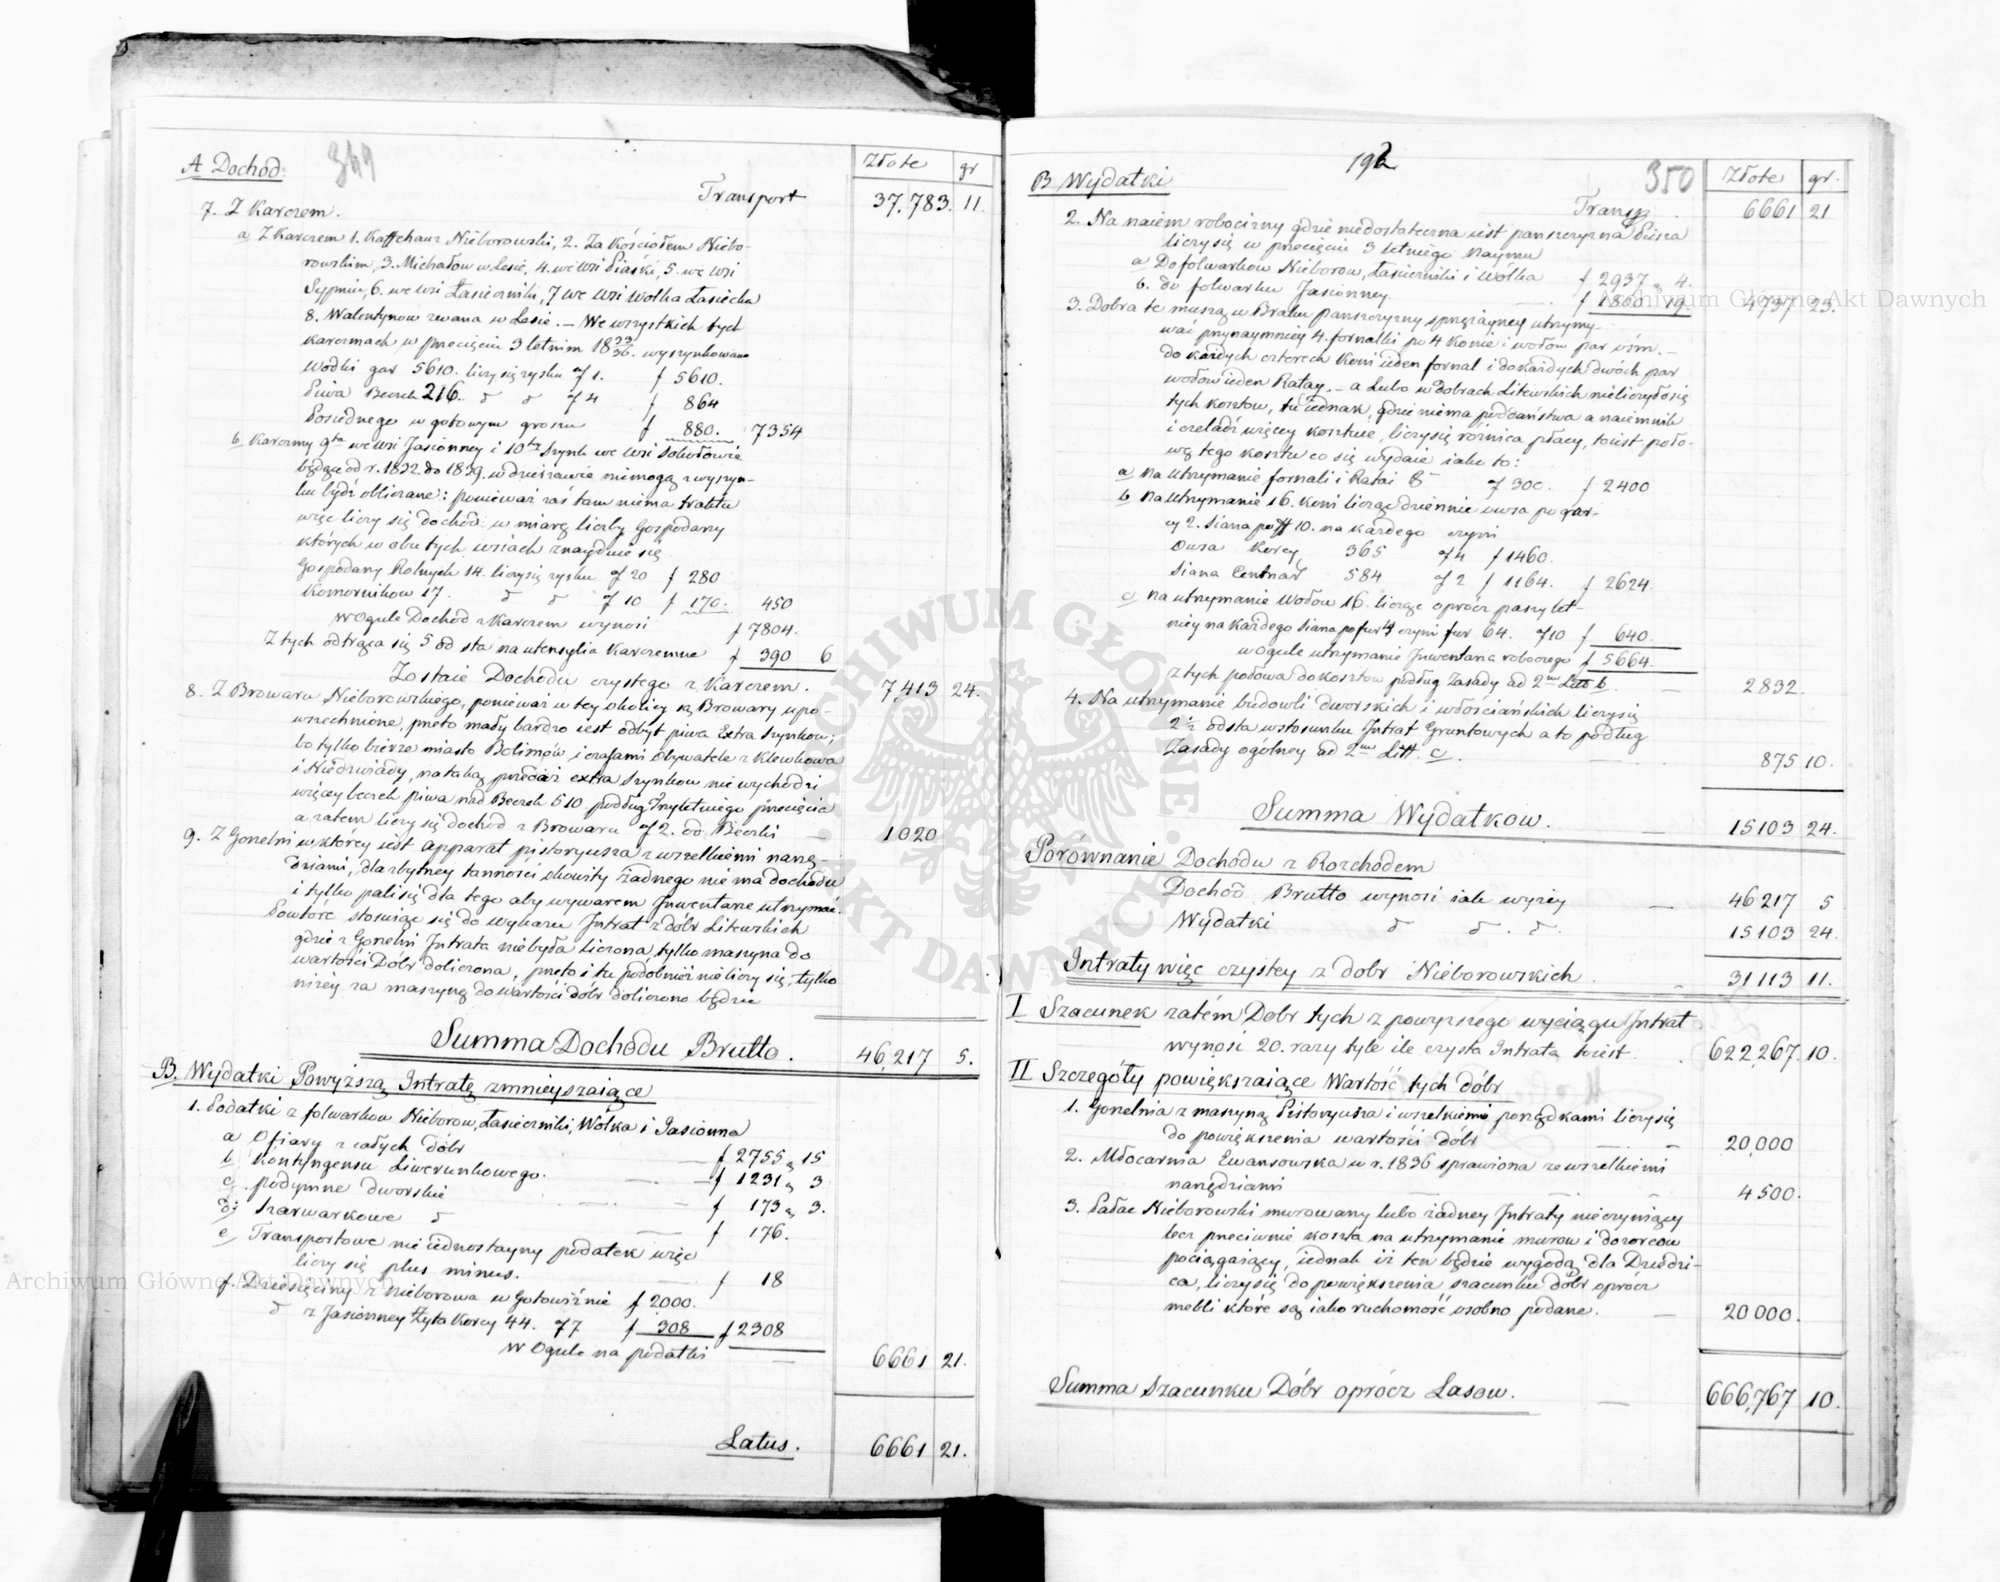 A Dochód: 349
Złote gr
Transport 37,783. 11.
7. Z Karczem.
a Z Karczem 1. Kaffehauz Nieborowski, 2. Za Kościołem Niebo-
rowskim, 3. Michałow w Lesie, 4. we wsi Piaski, 5. we wsi
Sypniu, 6. we wsi Łasieczniki, 7 we wsi Wolka Łasiecka
8. Walentynow zwana w Lesie. – We wszystkich tych
karczmach w przecięciu 3 letnim 18 33/36. wyszynkowano
Wodki gar 5610. liczy się zysku af 1. f 5610.
Piwa Beczek 216. d d af 4 f 864
Posiednego w gotowym groszu f 880. 7354
b Karczmy 9ta we wsi Jasionney i 10ta Szynk we wsi Sokołowie
będąc od r. 1832 do 1839. w dzierzawie niemogą z wyszyn-
ku bydź obliczane: ponieważ zaś tam niema traktu
więc liczy się dochód w miarę liczby Gospodarzy
których w obu tych wsiach znayduie się
Gospodarzy Rolnych 14. liczy się zysku af 20 f 280
Komornikow 17. d d af 10 f 170. 450
W Ogule Dochód z Karczem wynosi f 7804.
Z tych odtrąca się 5 od sta na utensylia Karczemne f 390 6
Zostaie Dochodu czystego z Karczem. 7,413 24.
8. Z Browaru Nieborowskiego, ponieważ w tey okolicy są Browary upo-
wszechnione, przeto mały bardzo iest odbyt piwa Extra szynkow;
bo tylko bierze miasto Bolimów, i czasami Obywatele z Klewkowa
i Niedzwiady, na taką przedaż extra szynkow nie wychodzi
więcey beczek piwa nad Beczek 510. podług Trzyletniego przecięcia
a zatem liczy się dochod z Browaru af 2. od Beczki 1020
9. Z Gorzelni w którey iest apparat pistoryusza z wszelkiemi narzę-
dziami, dla zbytney tanności okowity żadnego nie ma dochodu
i tylko pali się dla tego aby wywarem Inwentarze utrzymać.
Powtóre stosuiąc się do wykazu Intrat z dóbr Litewskich
gdzie z Gorzelni Intrata niebyła liczona tylko maszyna do
wartości Dóbr doliczona, przeto i tu podobnież nie liczy się, tylko
niżey za maszynę do wartości dóbr doliczono będzie
Summa Dochodu Brutto. 46,217 5.
B. Wydatki Powyższą Intratę zmnieyszaiące
1. Podatki z folwarkow Nieborow, Łasieczniki, Wólka i Jasionna
a Ofiary z całych dóbr f 2755 „ 15
b Kontyngensu Liwerunkowego. f 1231 „ 3
c podymne dworskie f 173 „ 3.
d: szarwarkowe d f 176.
e Transportowe nie iednostayny podatek więc
liczy się plus minus. f 18
f. Dziesięciny z Nieborowa w Gotowiźnie f 2000.
d z Jasionney Żyta Korcy 44. af 7 f 308 f 2308
W Ogule na podatki 6661 21.
Latus. 6661 21.
192 350
B Wydatki Złote gr.
Transp. 6661 21
2. Na naiem robocizny gdzie niedostateczna iest panszczyzna Piesza
liczy się w przecięciu 3 letniego Naymu
a Do folwarkow Nieborow, Łasieczniki i Wólka f 2937 „ 4.
b. do folwarku Jasionney f 1800 „ 19. 4737 23.
3. Dobra te muszą w Braku panszczyzny sprzężayney utrzymy-
wać przynaymniey 4. fornalki po 4 Konie i wołow par ośm. –
do każdych czterech Koni ieden fornal i do każdych dwóch par
wołow ieden Rataj. – a Lubo w dobrach Litewskich nieliczyło się
tych kosztow, tu iednak, gdzie niema poddaństwa a naiemnik
i czeladź więcey kosztuie, liczy się różnica płacy, toiest poło-
wę tego kosztu co się wydaie iako to:
a na utrzymanie fornali i Ratai 8 af 300. f 2400
b na utrzymanie 16. koni licząc dziennie owsa po gar-
cy 2. Siana po ff 10. na każdego czyni
Owsa Korcy 365 af 4 f 1460.
Siana Centnar 584 af 2 f 1164. f 2624.
c) na utrzymanie Wołow 16. licząc oprócz paszy let-
niey na każdego Siana po fur 4 czyni fur 64. af 10 f 640.
w Ogule utrzymanie Inwentarza roboczego f 5664.
z tych połowa do kosztow podług Zasady ad 2um Litt b. 2832.
4. Na utrzymanie budowli dworskich i włościańskich liczy się
2 1/2 od sta w stosunku Intrat Gruntowych a to podług
Zasady ogólney ad 2um Litt. c. 875 10.
Summa Wydatkow. 15103 24.
Porównanie Dochodu z Rozchodem
Dochód Brutto wynosi iak wyżey 46217 5
Wydatki d d. d. 15103 24.
Intraty więc czystey z dobr Nieborowskich. 31113 11.
I Szacunek zatém Dobr tych z powyższego wyciągu Intrat
wynosi 20. razy tyle ile czysta Intrata toiest. 622,267. 10.
II Szczegóły powiększaiące Wartość tych dóbr
1. Gorzelnia z maszyną Pistoryusza i wszelkiemi porządkami liczy się
do powiększenia wartości dóbr 20,000
2. Młocarnia Ewansowska w r. 1836 sprawiona ze wszelkiemi
narzędziami 4500.
3. Pałac Nieborowski murowany lubo żadney Intraty nie czyniący
lecz przeciwnie koszta na utrzymanie murow i dozorcow
pociągaiący, iednak iż ten będzie wygodą dla Dziedzi-
ca, liczy się do powiększenia szacunku dóbr oprócz
mebli które są iako ruchomość osobno podane. 20000.
Summa szacunku Dóbr oprócz Lasow. 666,767 10.
ARCHIWUM GŁÓWNE AKT DAWNYCH
Archiwum Główne Akt Dawnych
Archiwum Główne Akt Dawnych